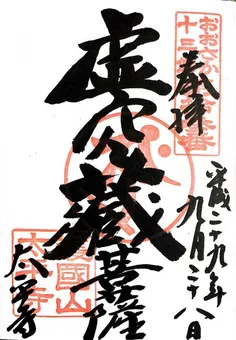 奉拝
平成二十九年
九月二十八日
虚空蔵菩薩
太平寺
おおさか十三
護國山
太平寺